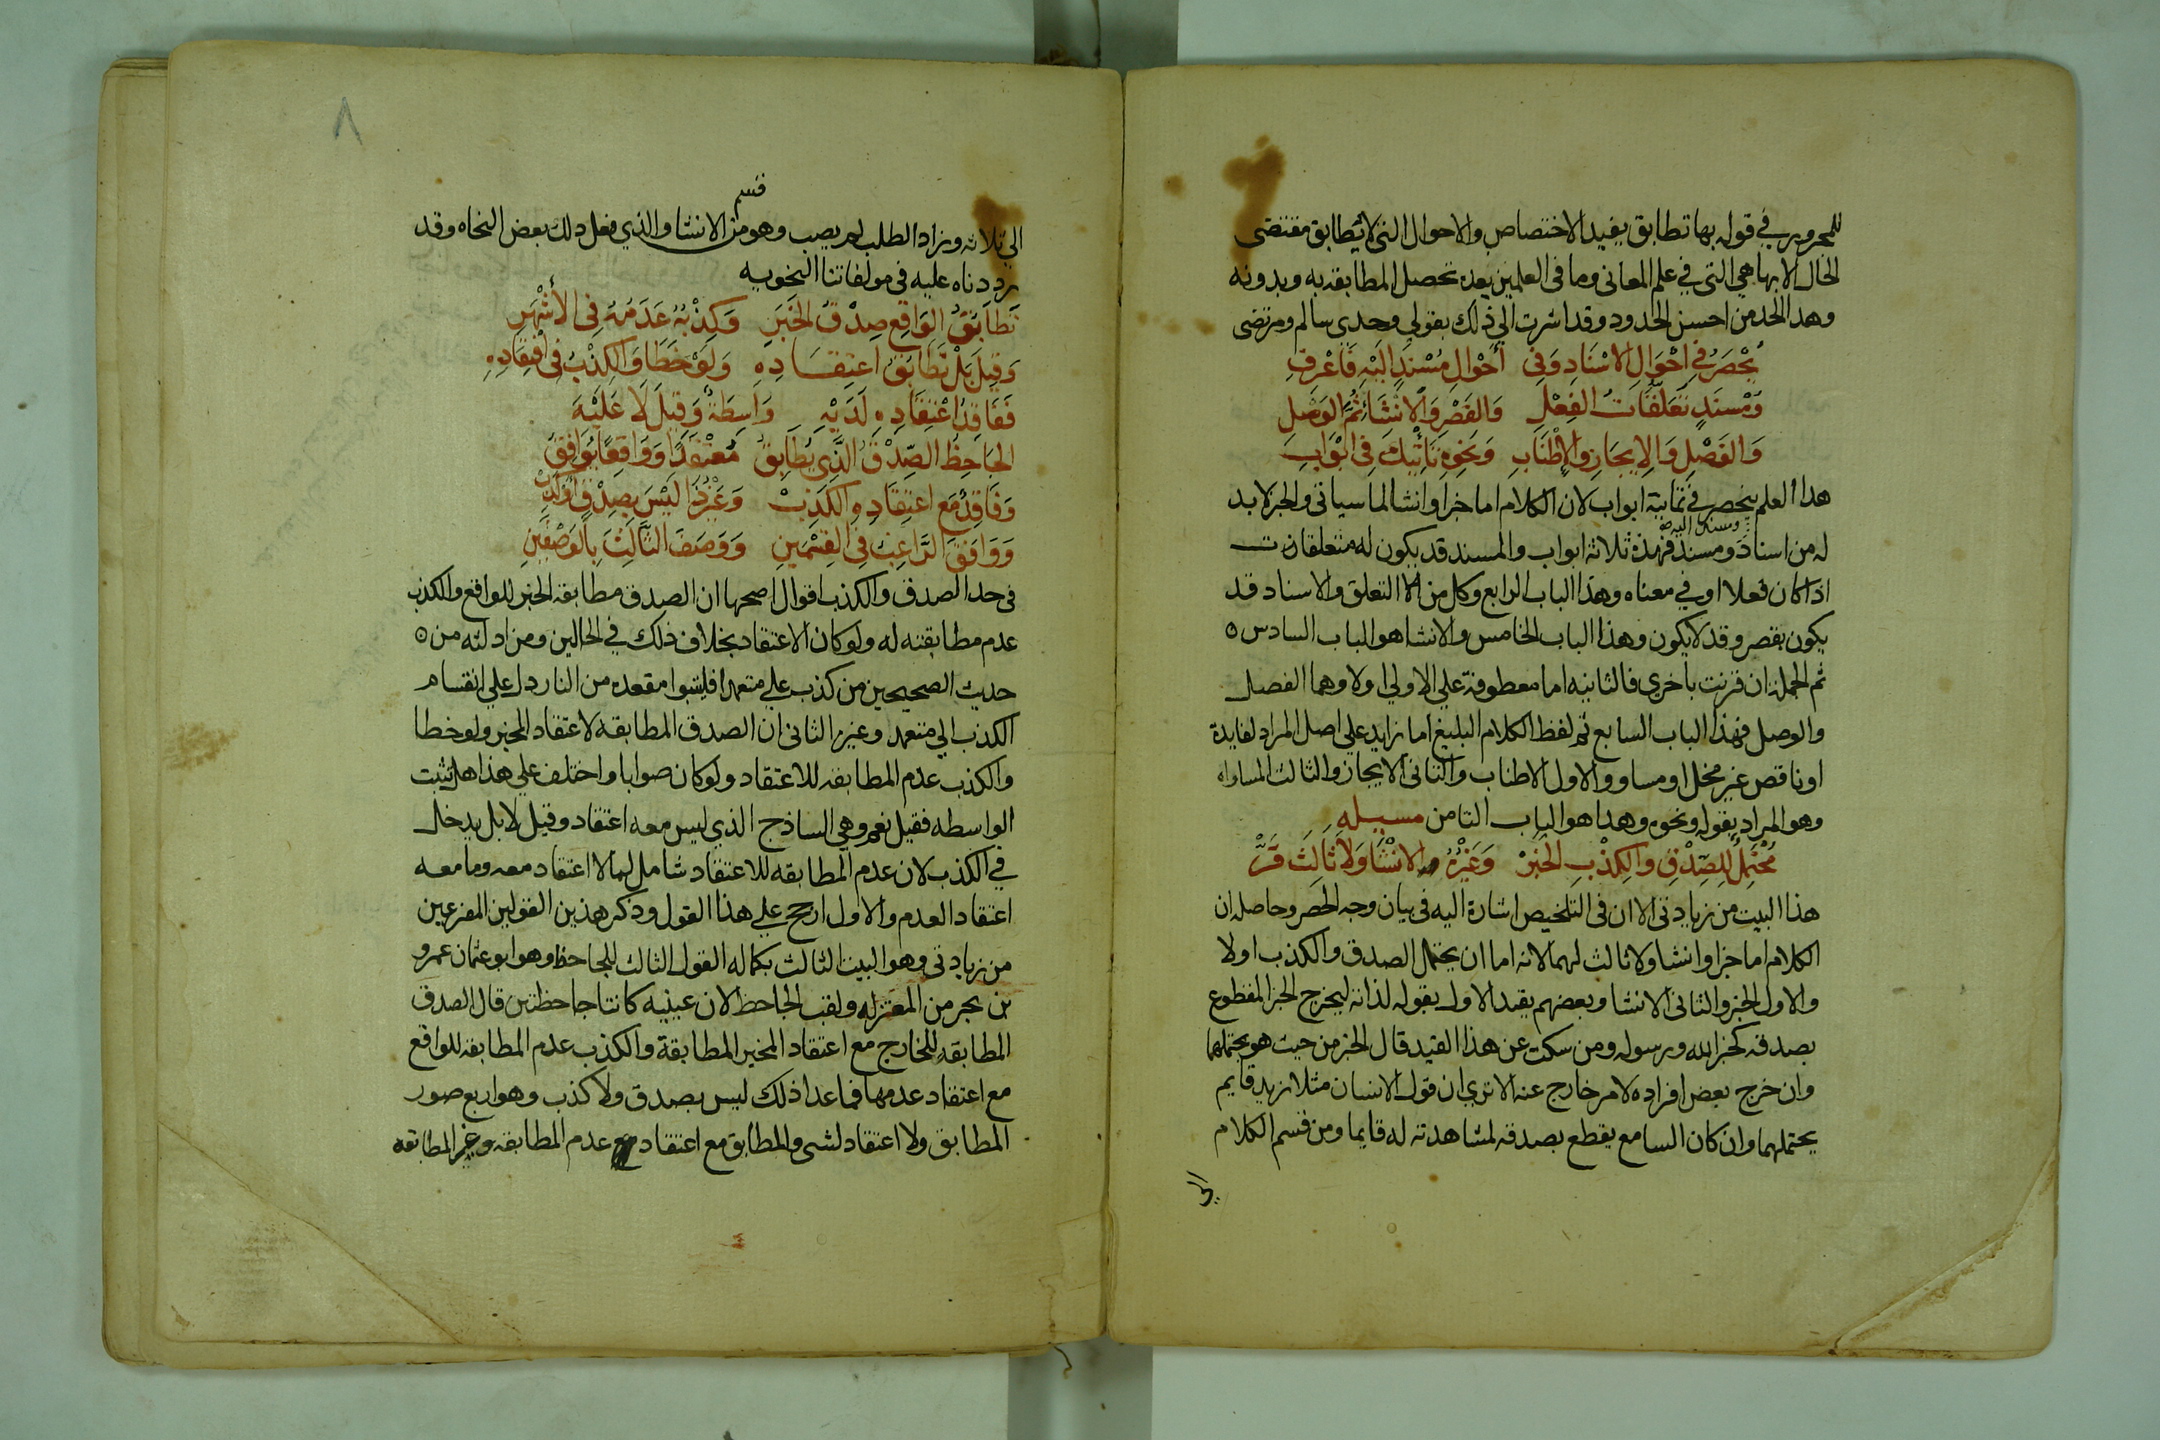 للمجرور في قوله بها تطابق يفيد الاختصاص والاحوال التى لا يطابق مقتضى
الحال الا بها هي التى في علم المعانى وما فى العلمين بعده تحصل المطابقه به وبدونه
وهدا الحد من احسن الحدود وقد اشرت الي ذلك بقولي وحدي سالم ومرتضى
يُحْصَرُ فِي اَحْوَالِ الاِسْنَادِ وَفِي اَحْوَالِ مُسْنَدٍ اِلَيْهِ فَاعْرِفِ
وَمُسْنَدٍ تَعَلُّقَاتُ الفِعْلِ وَالقَصْرِ وَالاِنْشَا ثُمَّ الوَصْلِ
وَالفَصْلِ وَالاِيجَازِ وَالاِطْنَابِ وَنَحْوِهِ تَأْتِيكَ فِي اَبْوَابِ
هدا العلم ينحصر في ثمانية ابواب لان الكلام اما خبر او انشا لما سياتى والخبر لا بد
ومسند اليه صح
له من اسناد ومسند فهذه ثلاثة ابواب والمسند قد يكون له متعلقات
اذا كان فعلا او في معناه وهذا الباب الرابع وكل من الا التعلق والاسناد قد
يكون بقصر وقد لا يكون وهذا الباب الخامس والانشا هو الباب السادس ٥
ثم الجملة ان قرنت باخرى فالثانيه اما معطوفة علي الاولي او لا وهما الفصل
والوصل فهذا الباب السابع ثم لفظ الكلام البليغ اما زايد علي اصل المراد لفايدة
او ناقص غير مخل او مساو والاول الاطناب والثانى الايجاز والثالث المساواه
وهو المراد بقوله ونحوه وهدا هو الباب الثامن مسيله
مُحْتَمِلٌ لِلصِّدْقِ وَالكِذْبِ الخَبَرْ وَغَيْرُهُ الاِنْشَا وَلَا ثَالِثَ قَرّْ
هذا البيت من زيادتى الا ان فى التلخيص اشارة اليه فى بيان وجه الحصر وحاصله ان
الكلام اما خبر او انشا ولا ثالث لهما لانه اما ان يحتمل الصدق والكذب او لا
والاول الخبر والثانى الانشا وبعضهم يقيد الاول بقوله لذاته ليخرج الخبر المقطوع
بصدقه كخبر الله ورسوله ومن سكت عن هذا القيد قال الخبر من حيث هو يحتملهما
وان خرج بعض افراده لامر خارج عنه الا ترى ان قول الانسان مثلا زيد قايم
يحتملهما وان كان السامع يقطع بصدقه لمشاهدته له قايما ومن قسم الكلام
الي
٨
قسم
الي ثلاثه وزاد الطلب لم يصب وهو من الانشا والذي فعل دلك بعض النحاه وقد
رددناه عليه فى مولفاتنا النحويه
تَطَابُقُ الوَاقِعِ صِدْقُ الخَبَرِ وَكِذْبُهُ عَدَمُهُ فِي الأَشْهَرِ
وَقِيلَ بَلْ تَطَابُقُ اعْتِقَادِهِ وَلَوْ خَطَا وَالكِذْبُ فِي افْتِقَادِهِ
فَفَاقِدُ اعْتِقَادِهِ لَدَيْهِ وَاسِطَةٌ وَقِيلَ لَا عَلَيْهِ
الجَاحِظُ الصِّدْقُ الَّذِي يُطَابِقُ مُعْتَقَدًا وَوَاقِعًا يُوَافِقُ
وَفَاقِدٌ مَعَ اعْتِقَادِهِ الكَذِبْ وَغَيْرُ ذَا لَيْسَ بِصِدْقٍ اَوْ كَذِبْ
وَوَافَقَ الرَّاغِبُ فِي القِسْمَيْنِ وَوَصَفَ الثَّالِثَ بِالوَصْفَيْنِ
فى حد الصدق والكذب اقوال اصحها ان الصدق مطابقه الخبر للواقع والكذب
عدم مطابقته له ولو كان الاعتقاد بخلاف ذلك في الحالين ومن ادلته من ٥
حديث الصحيحين من كذب علي متعمدا فليتبوا مقعده من النار دل علي انقسام
الكذب الي متعمد وغيره الثانى ان الصدق المطابقه لاعتقاد المخبر ولو خطا
والكذب عدم المطابقه للاعتقاد ولو كان صوابا واختلف علي هذا هل تثبت
الواسطه فقيل نعم وهي الساذج الذي ليس معه اعتقاد وقيل لا بل يدخل
في الكذب لان عدم المطابقه للاعتقاد شامل لما لا اعتقاد معه وما معه
اعتقاد العدم والاول ارجح علي هذا القول وذكر هذين القولين المفرعين
من زيادتى وهو البيت الثالث بكماله القول الثالث للجاحظ وهو ابو عثمان عمرو
بن بحر من المعتزله ولقب الجاحظ لان عينيه كانتا جاحظتين قال الصدق
المطابقه للخارج مع اعتقاد المخبر المطابقة والكذب عدم المطابقه للواقع
مع اعتقاد عدمها فما عدا ذلك ليس بصدق ولا كذب وهو اربع صور
المطابق ولا اعتقاد لشى والمطابق مع اعتقاد عدم المطابقه وغير المطابقه